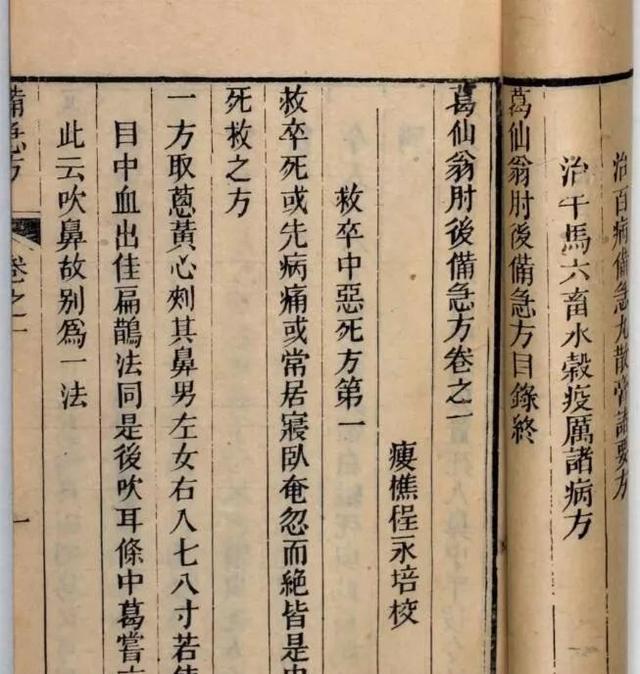 治百病備急丸散膏諸要方
治牛馬六畜水穀疫厲諸病方
葛仙翁肘後備急方目錄終
葛仙翁肘後備急方卷之一
瘦樵程永培校
救卒中惡死方第一
救卒死或先病痛或常居寢臥奄忽而絕皆是中
死救之方
一方取蔥黃心刺其鼻男左女右入七八寸若使
目中血出佳扁鵲法同是後吹耳條中葛嘗
此云吹鼻故别爲一法
備急方
卷之一
一